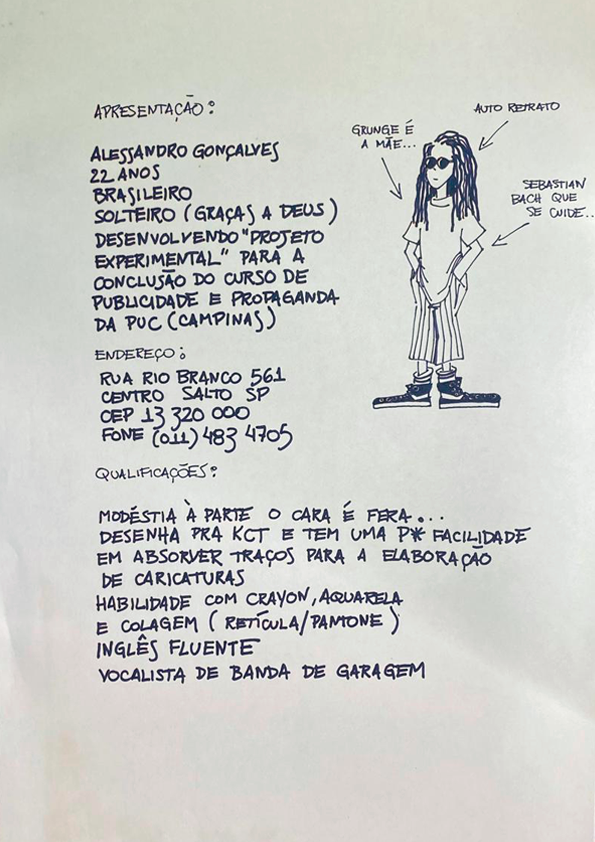 APRESENTAÇÃO:
AUTO RETRATO
GRUNGE É
A MÃE...
SEBASTIAN
BACH QUE
SE CUIDE...
ALESSANDRO GONÇALVES
22 ANOS
BRASILEIRO
SOLTEIRO (GRAÇAS A DEUS)
DESENVOLVENDO "PROJETO
EXPERIMENTAL" PARA A
CONCLUSÃO DO CURSO DE
PUBLICIDADE E PROPAGANDA
DA PUC (CAMPINAS)
ENDEREÇO:
RUA RIO BRANCO 561
CENTRO SALTO SP
CEP 13 320 000
FONE (011) 483 4705
QUALIFICAÇÕES:
MODÉSTIA À PARTE O CARA É FERA...
DESENHA PRA KCT E TEM UMA P* FACILIDADE
EM ABSORVER TRAÇOS PARA A ELABORAÇÃO
DE CARICATURAS
HABILIDADE COM CRAYON, AQUARELA
E COLAGEM (RETÍCULA/PAMTONE)
INGLÊS FLUENTE
VOCALISTA DE BANDA DE GARAGEM